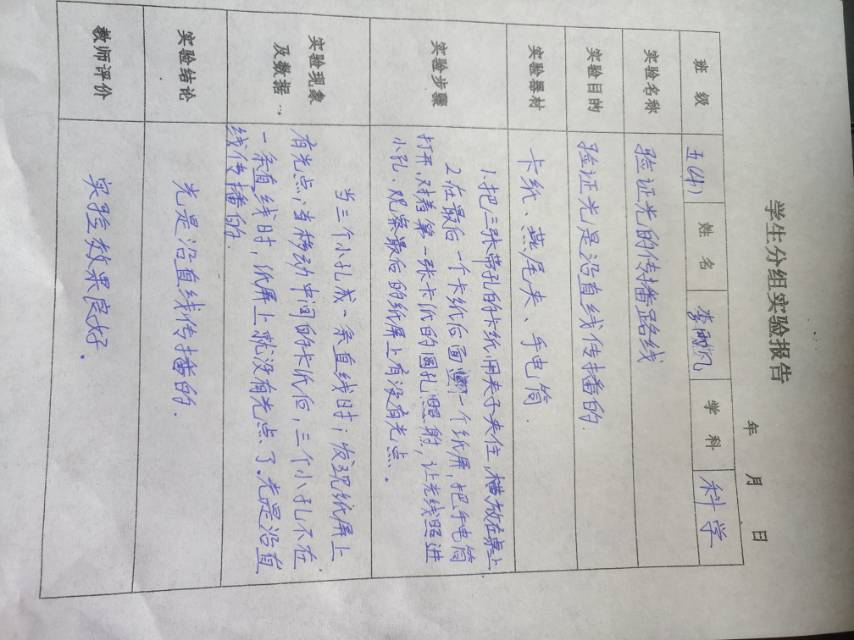 学生分组实验报告
年 月 日
班 级 五(4) 姓 名 李 凯 学 科 科学
实验名称 验证光的传播路线
实验目的 验证光是沿直线传播的.
实验器材 卡纸、燕尾夹、手电筒
实验步骤
1.把三张带孔的卡纸用夹子夹住,横放在桌上
2.在最后一个卡纸后面 个纸屏,把手电筒
打开,对着第一张卡纸的圆孔照射,让光线照进
小孔.观察最后的纸屏上有没有光点.
实验现象
及数据
当三个小孔成一条直线时;发现纸屏上
有光点;当移动中间的卡纸后,三个小孔不在
一条直线时,纸屏上就没有光点了.光是沿直
线传播的.
实验结论 光是沿直线传播的.
教师评价 实验效果良好.